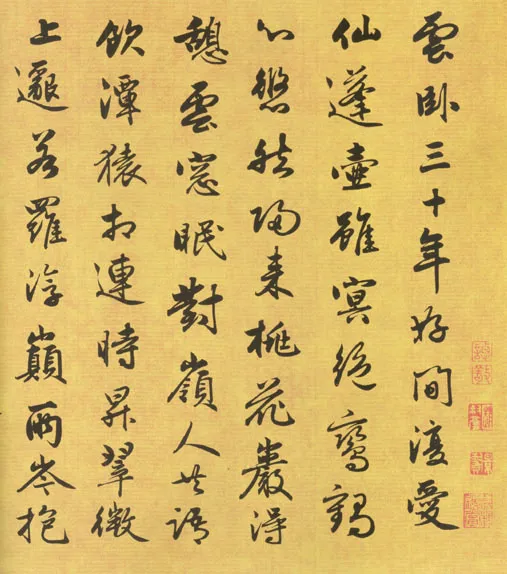 雲臥三十年好閒復愛
仙蓬壺雖冥絕鸞鶴
心悠然歸來桃花巖得
憩雲窓眠對嶺人共語
飲潭猿相連時昇翠微
上邈若羅浮巔兩岑抱